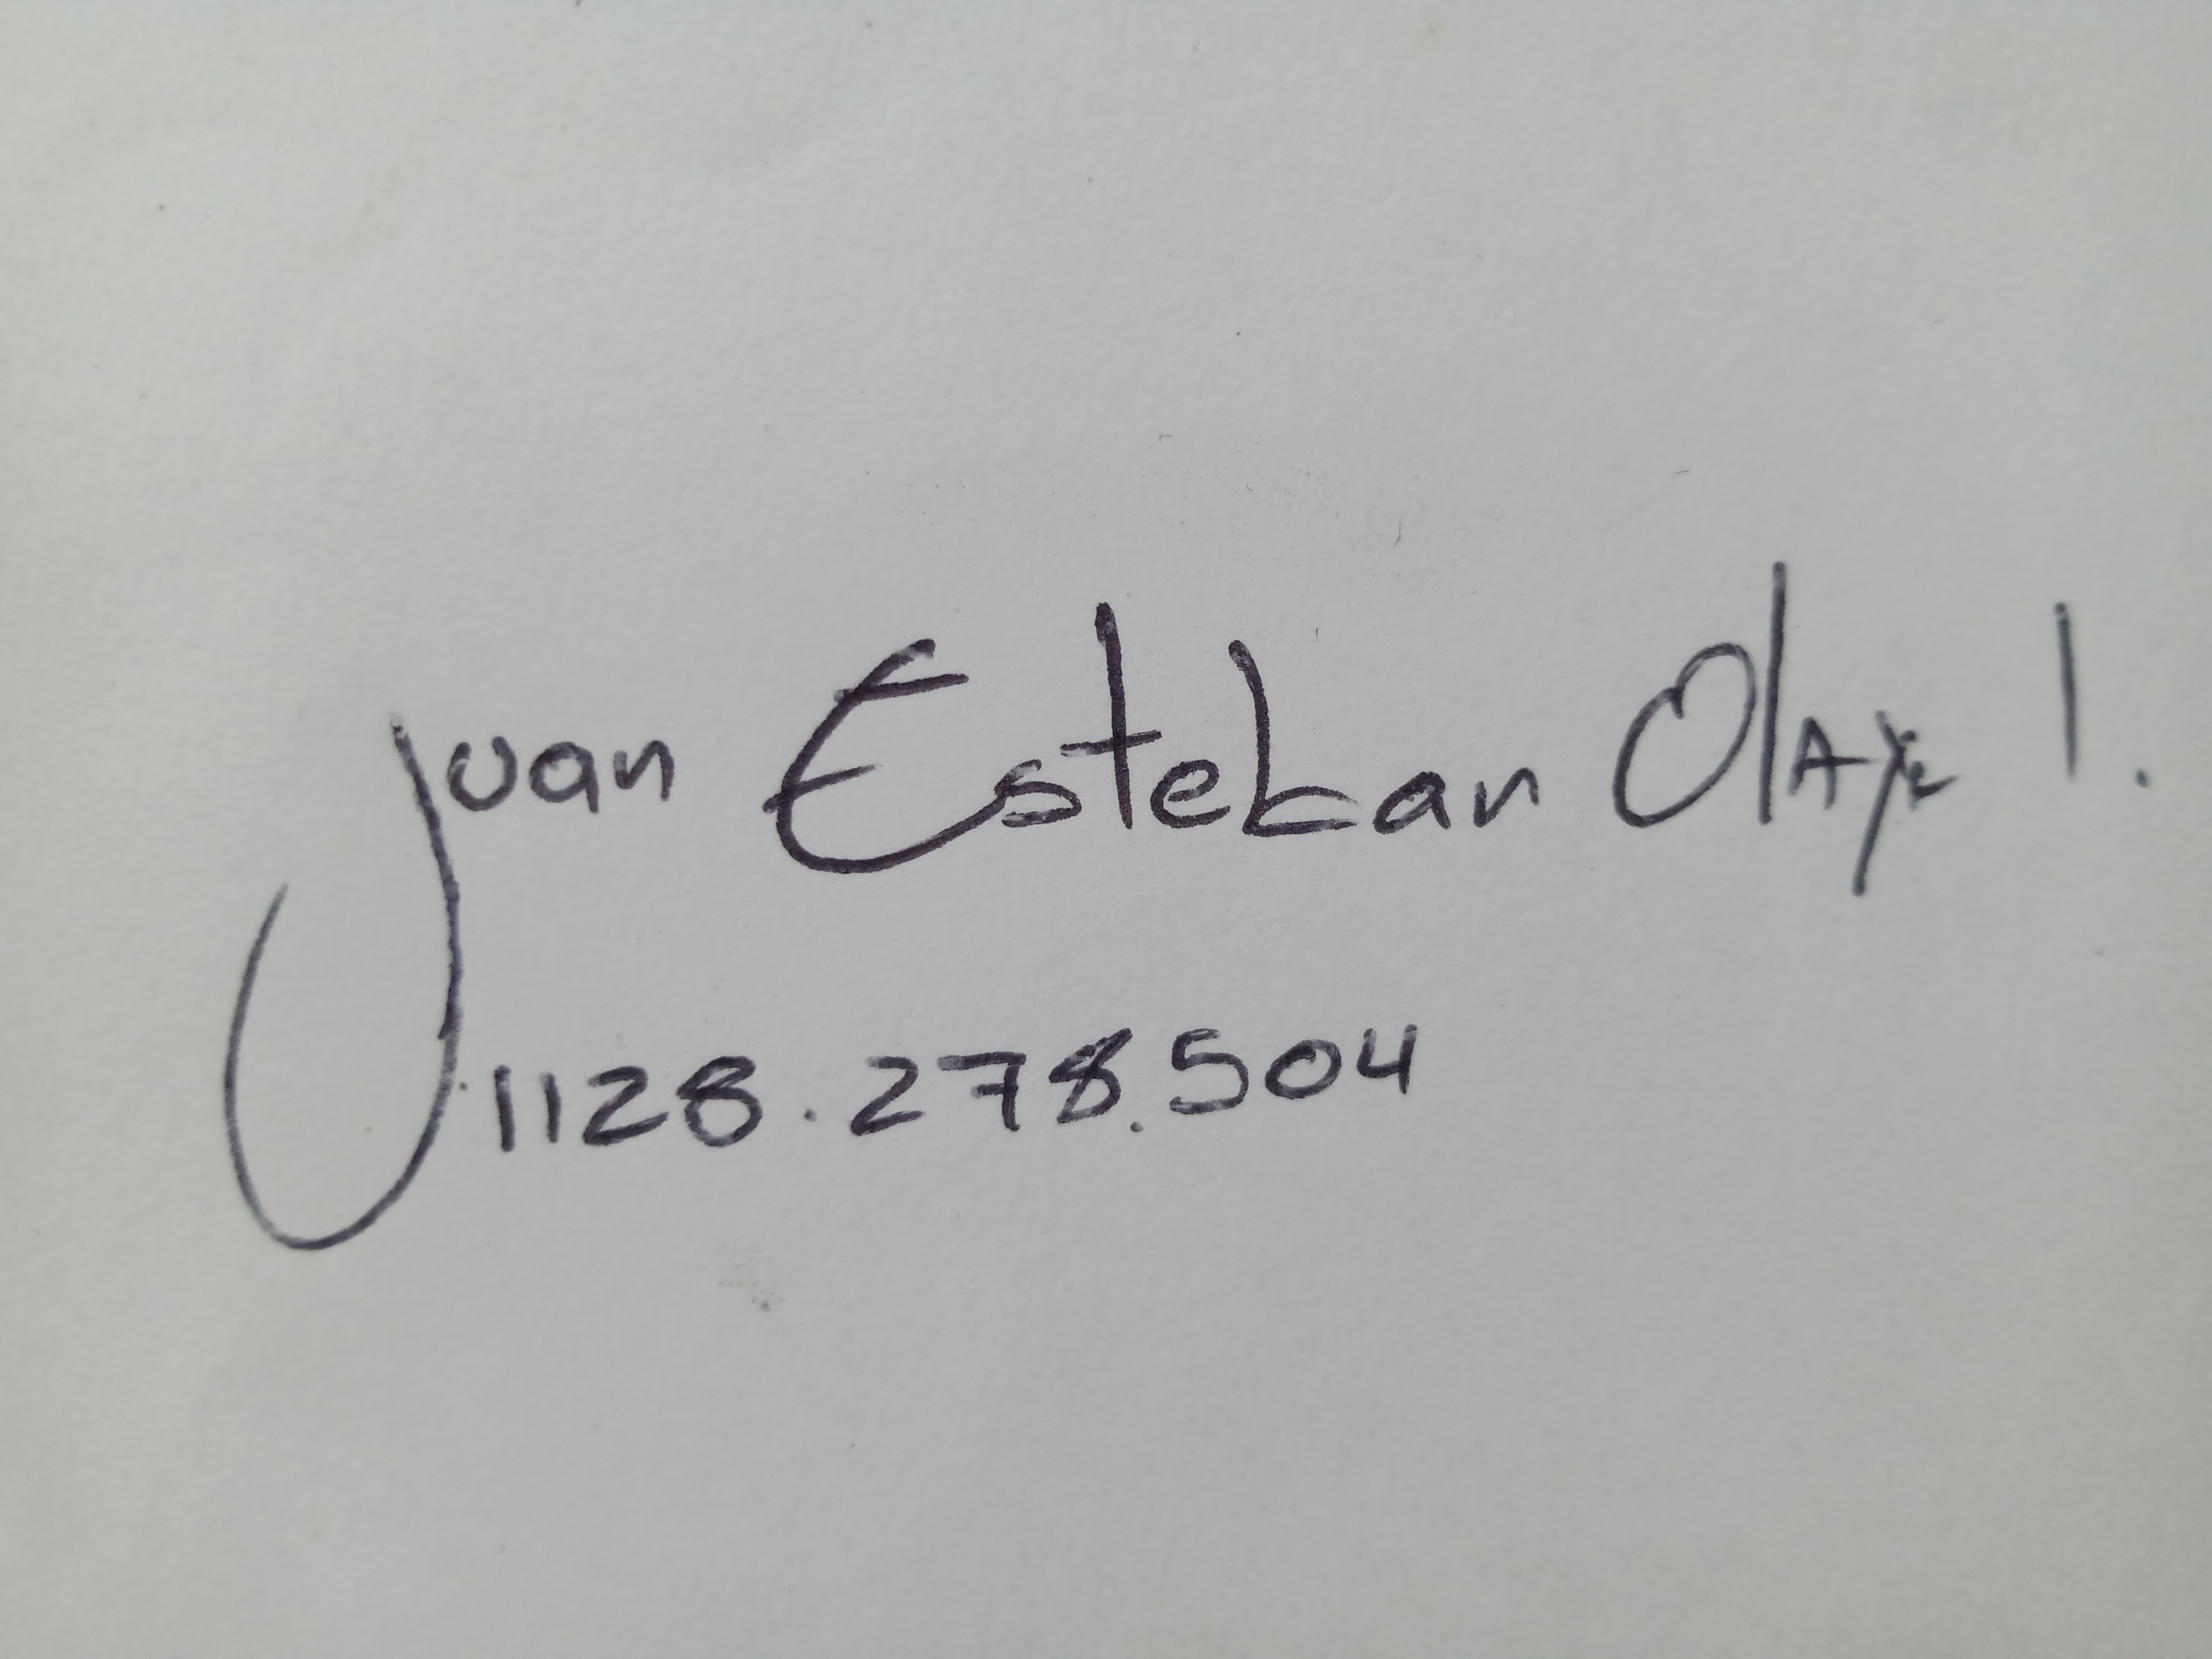 Juan Esteban Olaya I.
1128.278.504